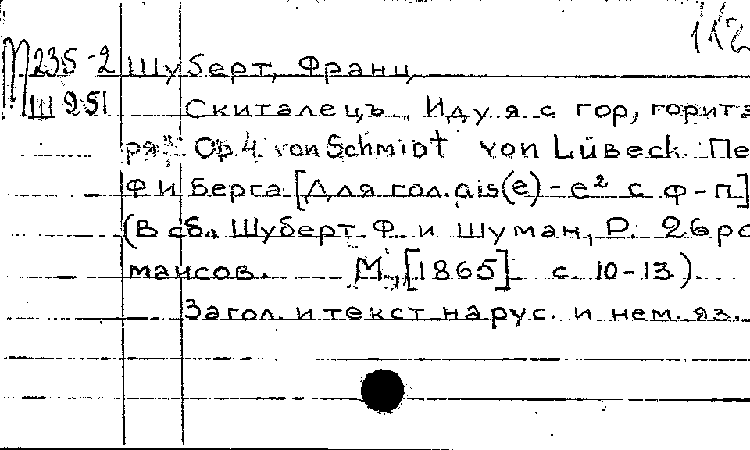 112
М235-2 Шуберт, Франц
Ш951 Скиталецъ „Иду я с гор, горит з
ря" Op 4. von Schmidt von Lübeck. Пе
Ф и Берга [Для гол. gis(e)-e² с ф-п]
(В сб., Шуберт Ф. и Шуман, Р. 26 ро
мансов. М., [1865] с. 10-13).
Загол. и текст на рус. и нем. яз.